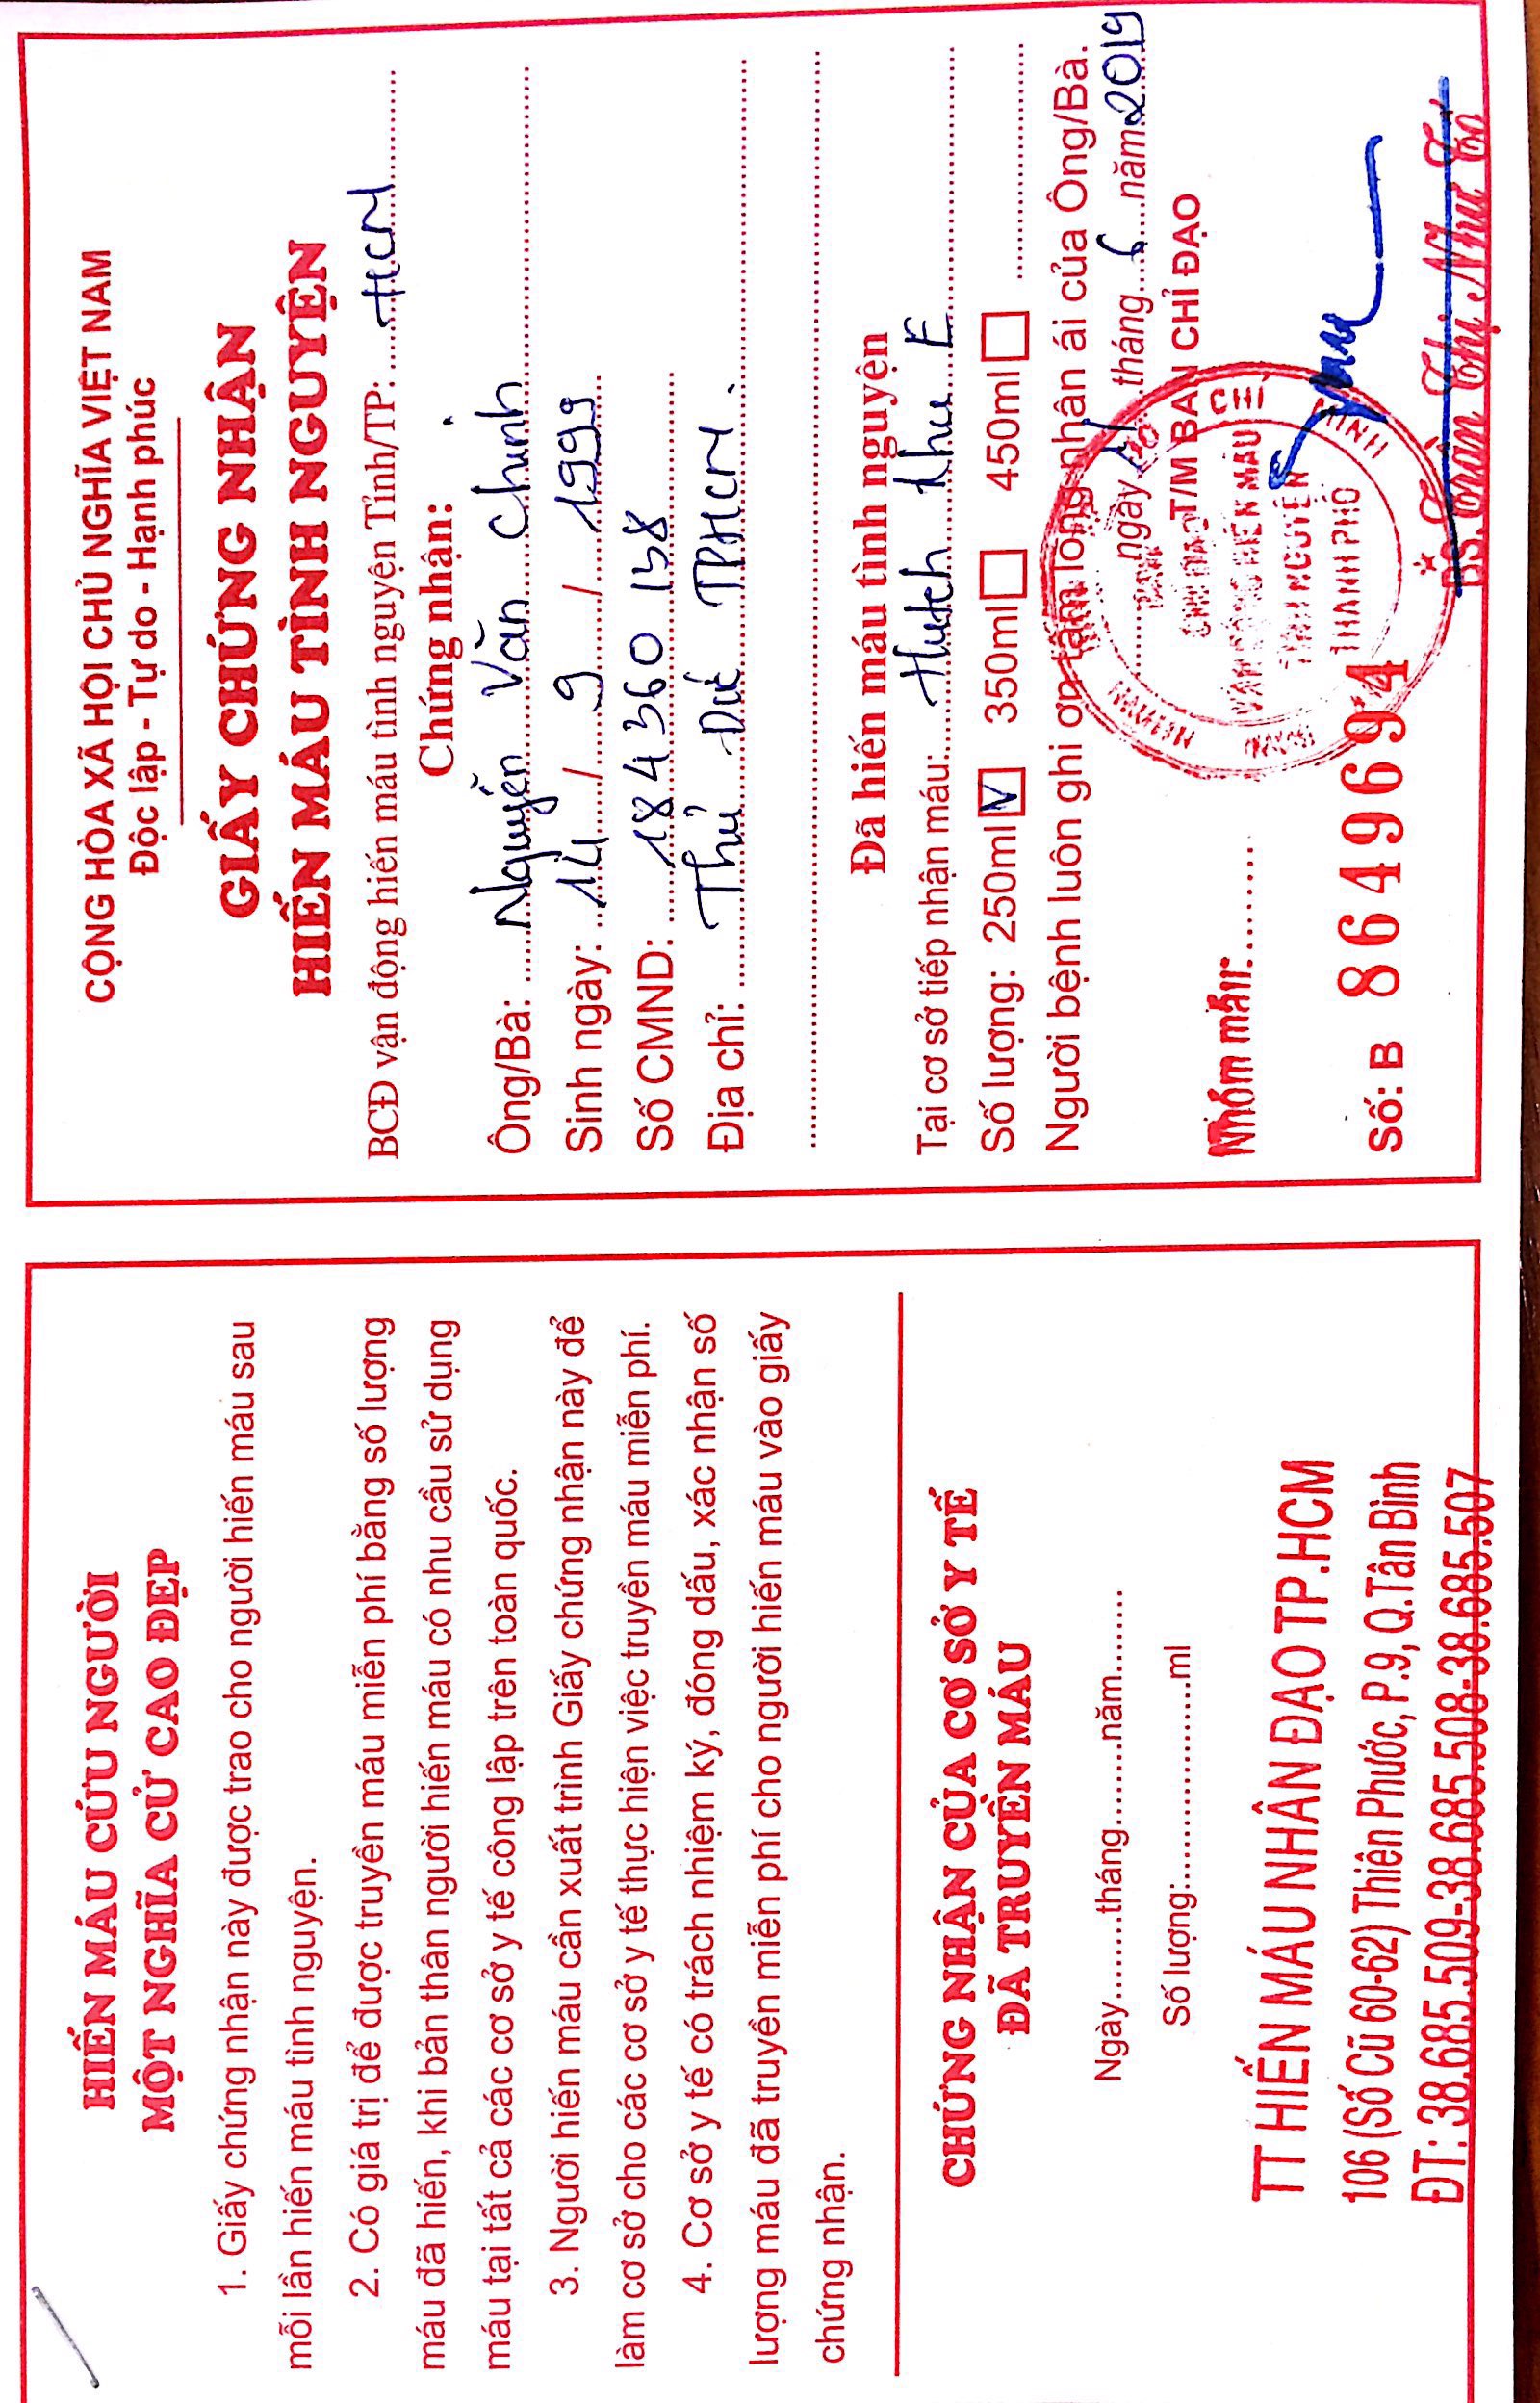 HIẾN MÁU CỨU NGƯỜI
MỘT NGHĨA CỬ CAO ĐẸP
1. Giấy chứng nhận này được trao cho người hiến máu sau
mỗi lần hiến máu tình nguyện.
2. Có giá trị để được truyền máu miễn phí bằng số lượng
máu đã hiến, khi bản thân người hiến máu có nhu cầu sử dụng
máu tại tất cả các cơ sở y tế công lập trên toàn quốc.
3. Người hiến máu cần xuất trình Giấy chứng nhận này để
làm cơ sở cho các cơ sở y tế thực hiện việc truyền máu miễn phí.
4. Cơ sở y tế có trách nhiệm ký, đóng dấu, xác nhận số
lượng máu đã truyền miễn phí cho người hiến máu vào giấy
chứng nhận.
CHỨNG NHẬN CỦA CƠ SỞ Y TẾ
ĐÃ TRUYỀN MÁU
Ngày........tháng........năm........
Số lượng:...................ml
TT HIẾN MÁU NHÂN ĐẠO TP.HCM
106 (Số Cũ 60-62) Thiên Phước, P.9, Q.Tân Bình
ĐT: 38.685.509-38.685.508-38.685.507
CỘNG HÒA XÃ HỘI CHỦ NGHĨA VIỆT NAM
Độc lập - Tự do - Hạnh phúc
GIẤY CHỨNG NHẬN
HIẾN MÁU TÌNH NGUYỆN
BCĐ vận động hiến máu tình nguyện Tỉnh/TP: HCM
Chứng nhận:
Ông/Bà: Nguyễn Văn Chinh
Sinh ngày: 14 / 9 / 1999
Số CMND: 184360 138
Địa chỉ: Thủ Đức TPHCM.
Đã hiến máu tình nguyện
Tại cơ sở tiếp nhận máu: Hutech Khu E
Số lượng: 250ml V 350ml 450ml
Người bệnh luôn ghi ơn tấm lòng nhân ái của Ông/Bà.
ngày 11 tháng 6 năm 2019
T/M BAN CHỈ ĐẠO
BAN
CHỈ ĐẠO
VẬN ĐỘNG HIẾN MÁU
TÌNH NGUYỆN
THÀNH PHỐ
Nhóm máu:
Số: B 8649694
BS. Trần Thị Như Tố